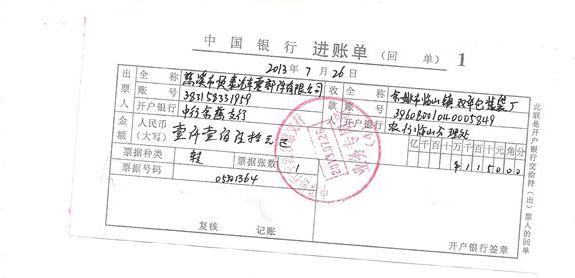 中国银行 进账单 (回 单) 1
2013年7月26日
出票人 全称 慈溪市 汽车零部件有限公司 收款人 全称 余姚市临山镇双年包装袋厂
账号 383158331959 账号 39608001040005849
开户银行 中行 支行 开户银行 农行临山分理处
金额 人民币(大写) 壹仟壹佰伍拾元正 亿千百十万千百十元角分
¥115000
票据种类 转 票据张数 1
票据号码 05301364
复核 记账 开户银行签章
此联是开户银行交给持(出)票人的回单
2013.07.26